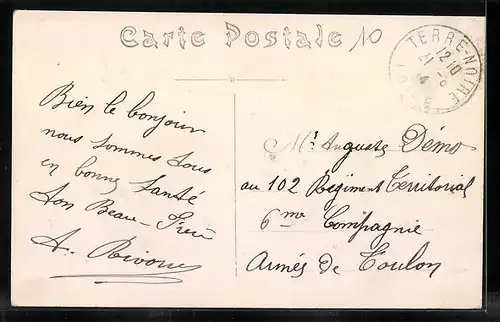 Carte Postale 10
TERRE-NOIRE
12 10
21 - 8
LOIRE
Bien le bonjour
nous sommes tous
en bonne santé
ton Beau-Frère
A. Rivory
Mr. Auguste Démo
au 102 Régiment Territorial
6me Compagnie
Armés de Toulon